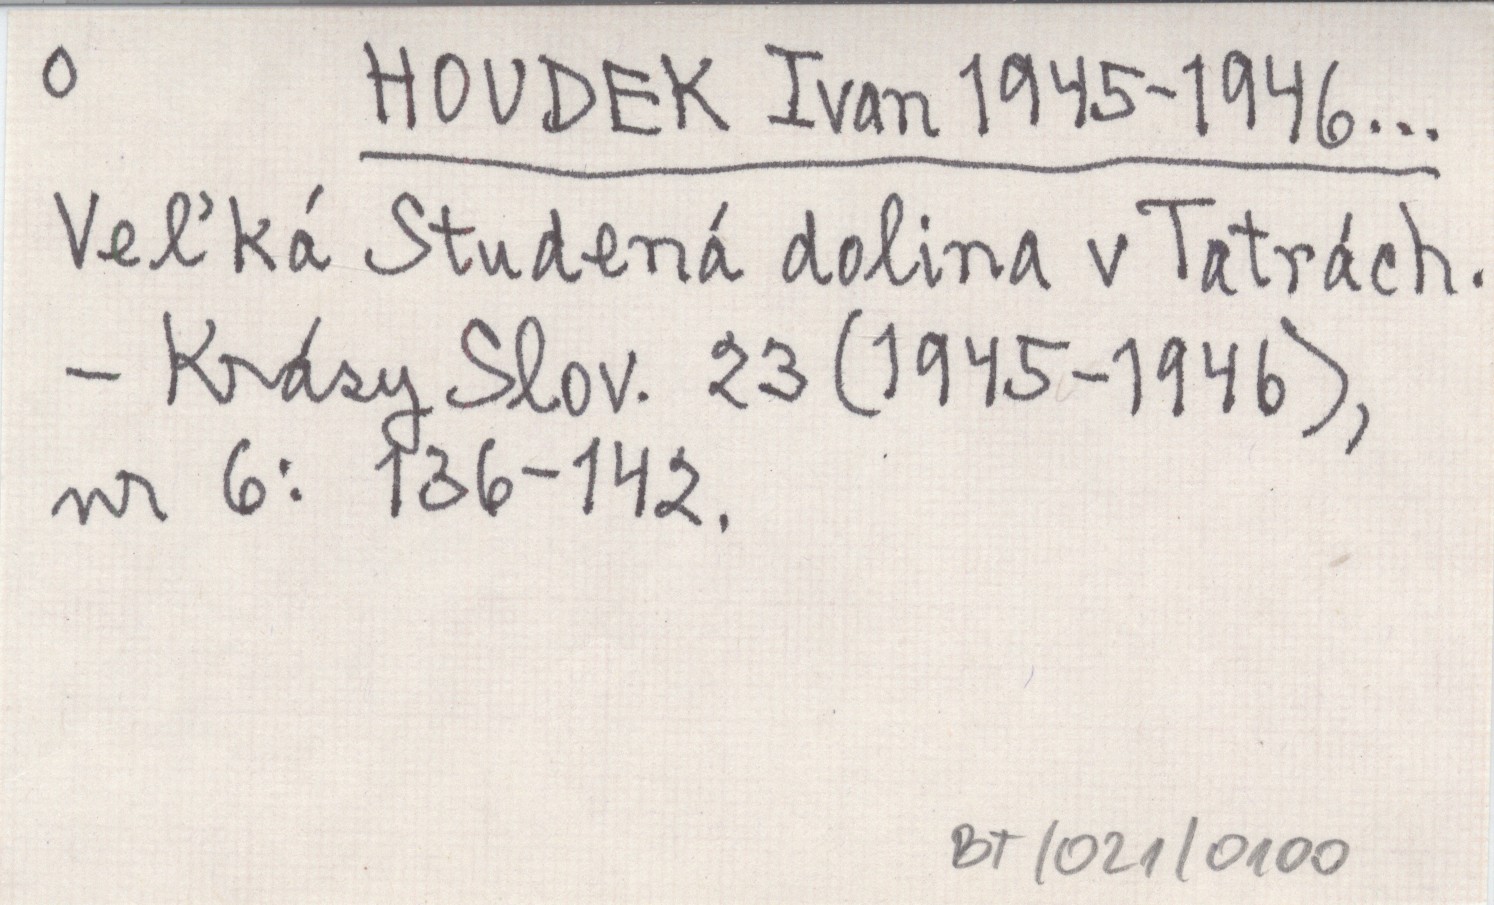 O HOUDEK Ivan 1945-1946...
Veľká Studená dolina v Tatrách.
- Krásy Slov. 23 (1945-1946),
nr 6: 136-142.
BT/021/0100